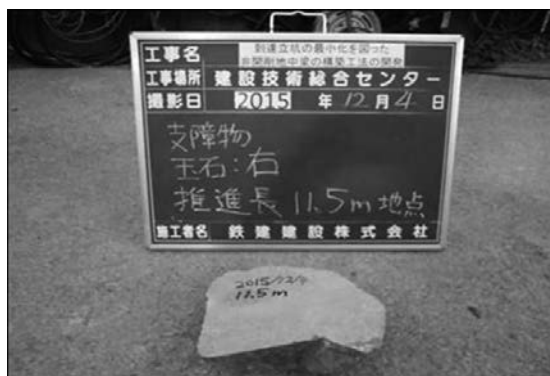 工事名 到達立坑の最小化を図った
非開削地中梁の構築工法の開発
工事場所 建設技術総合センター
撮影日 2015 年 12 月 4 日
支障物
玉石:右
推進長 11.5m 地点
施工者名 鉄建建設株式会社
2015/12/4
11.5m